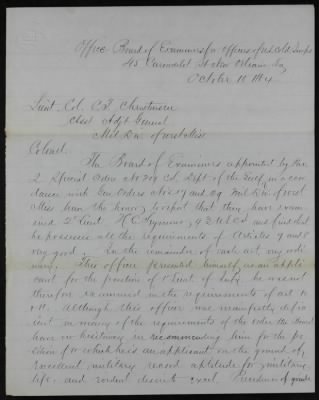 Office Board of Examiners for officers of Col'd Troops
45 Carondelet St New Orleans La
October 10 1864
Lieut. Col. C.T. Christensen
Asst Adjt General
Mil Div of West Miss
Colonel.
The Board of Examiners appointed by Par
2 Special Order No 209 Col. Dept of the Gulf in accor
dance with Gen. Orders Nos and 29 Mil Div of West
Miss have the honor to report that they have exam
ined 2d Lieut H.C. 92 U.S.C.I. and find that
he possesses all the requirements of Articles 7 and 8
very good. In the remainder of each art. very ordi
nary. This officer presented himself as an appli
cant for the position of 1st Lieut of Infty he cannot
therefore recommend in the requirements of art.
Although this officer was manifestly defic
ient in many of the requirements of the order the Board
have no hesitancy in recommending him for the po
sition for which he is an applicant on the ground of
excellent military record aptitude for military
life, and evident desire to excel. Freedom of